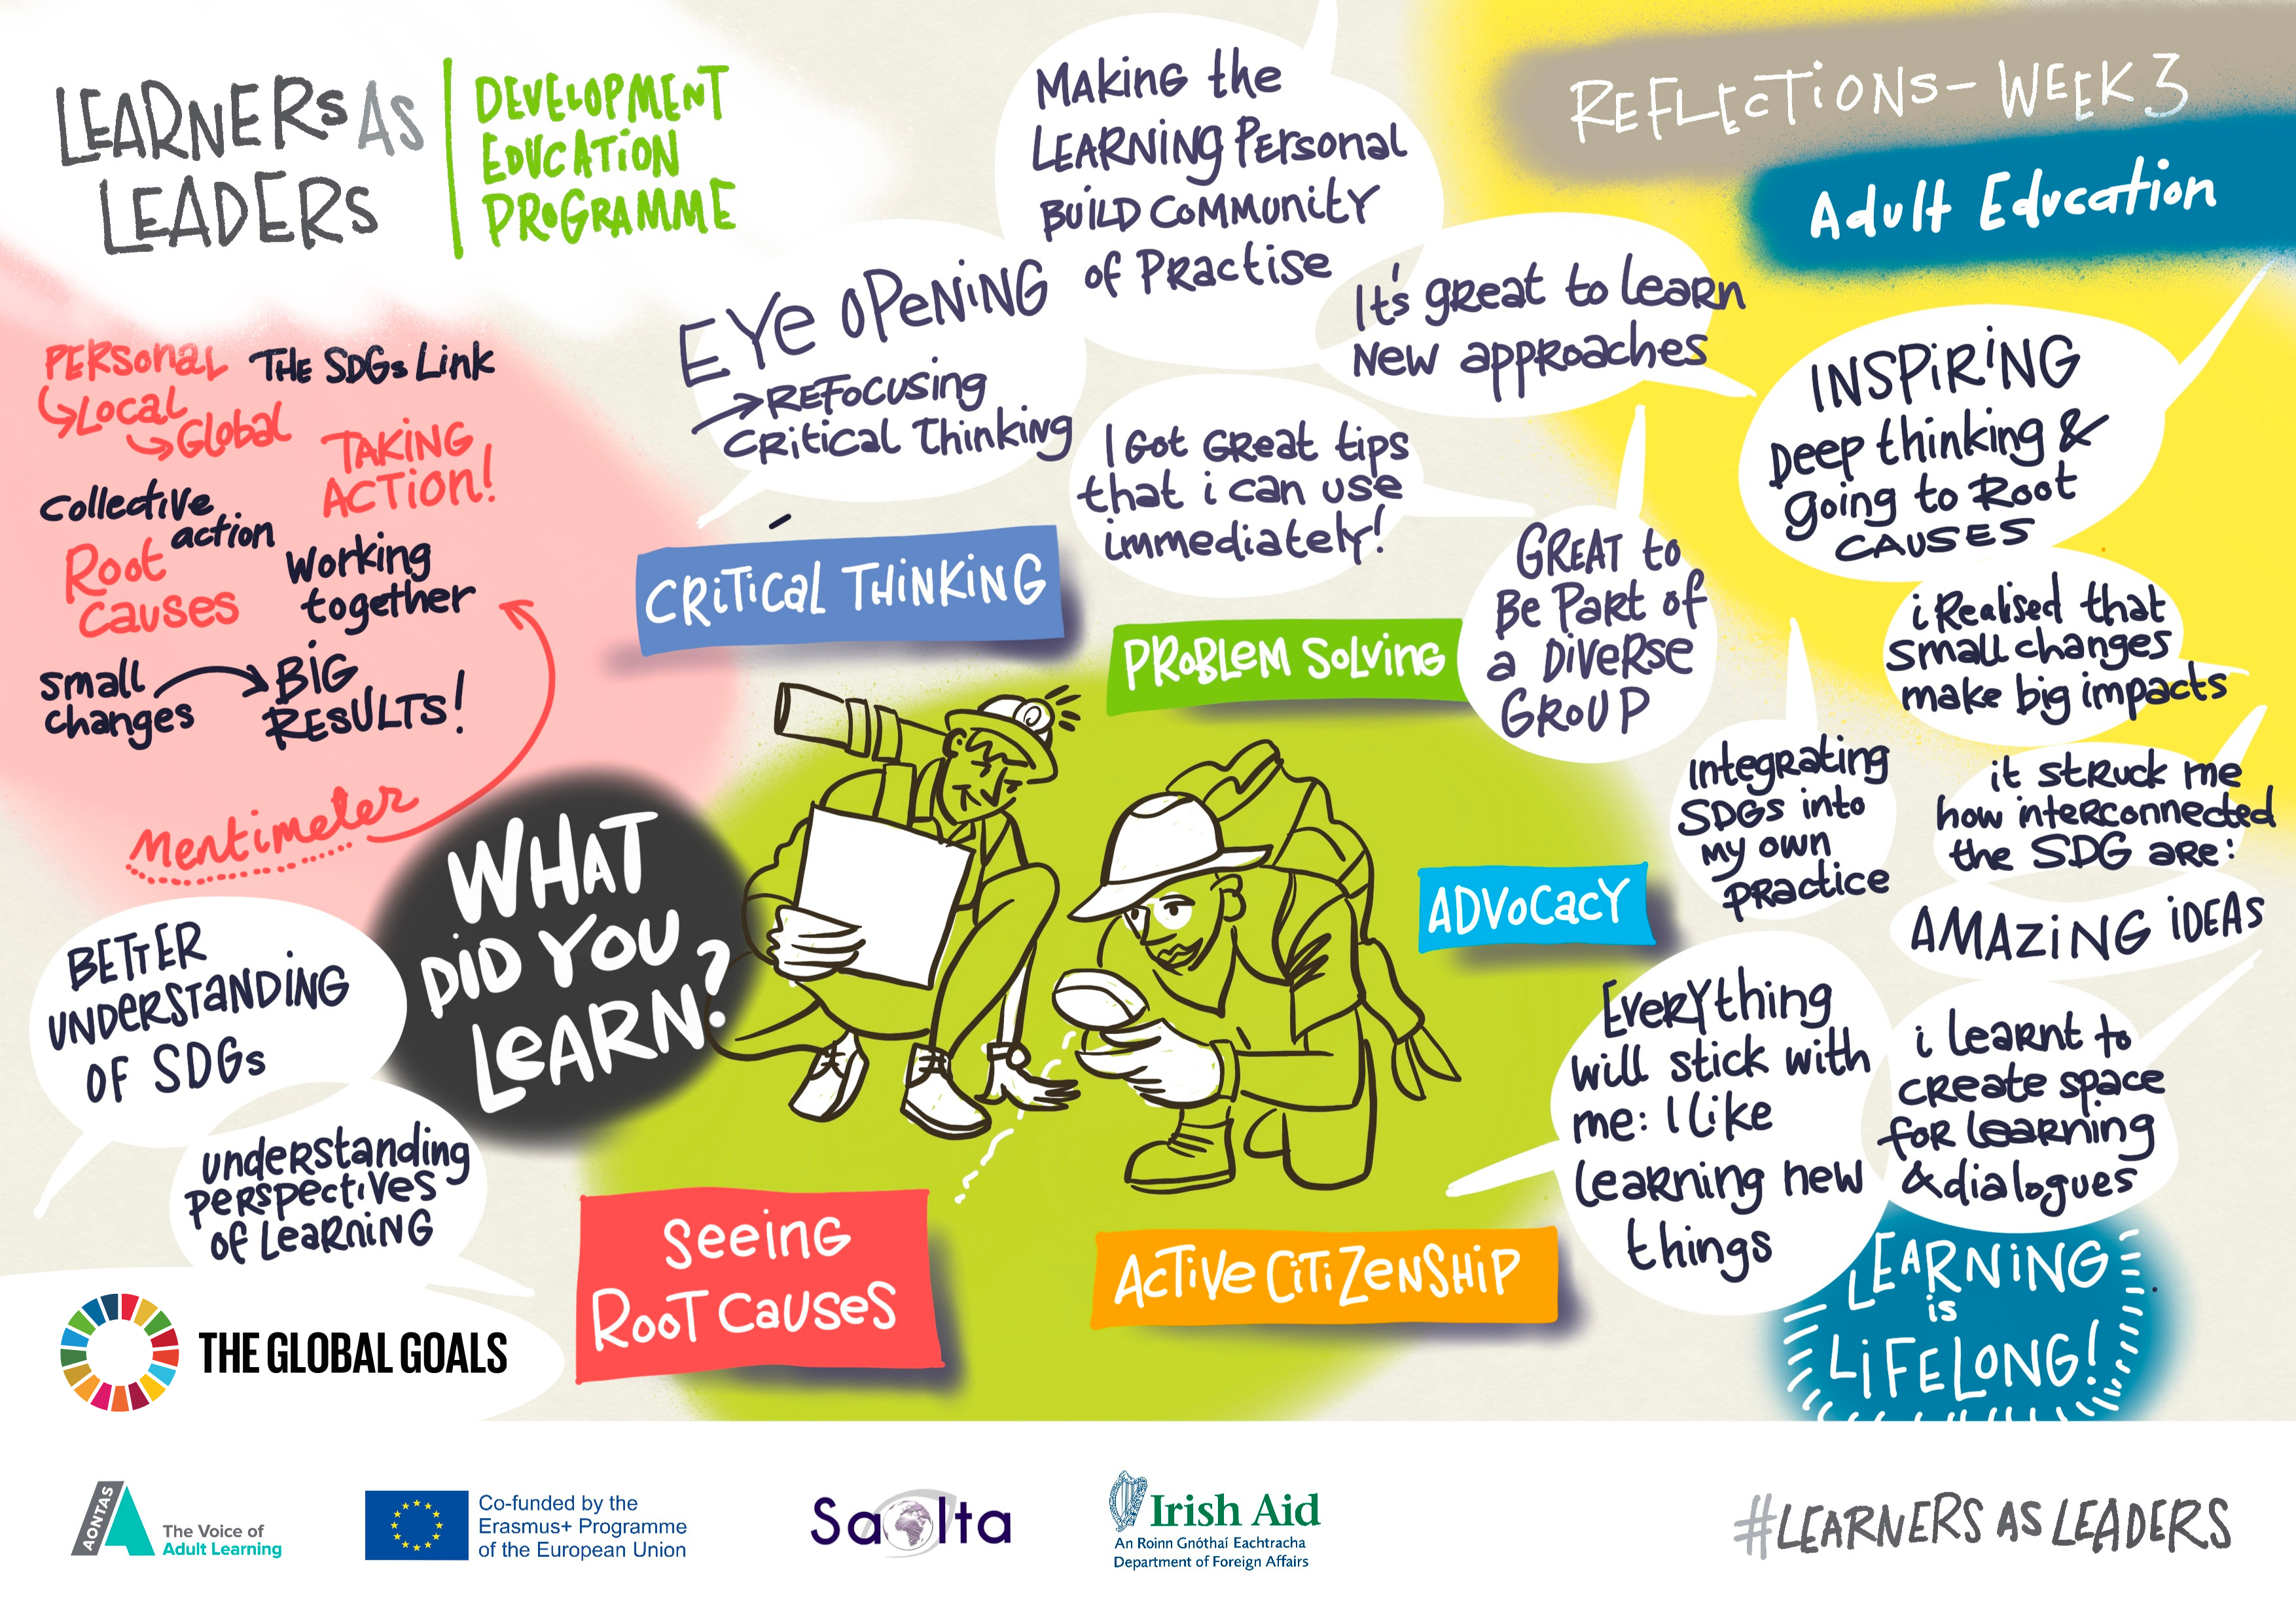 LEARNERS AS
LEADERS
DEVELOPMENT
EDUCATION
PROGRAMME
REFLECTIONS - WEEK 3
Adult Education
MAKING the
LEARNING Personal
BUILD COMMUNITY
of PRactise
EYE OPENING
→ REFOCUSING
CRitical Thinking
It's great to learn
New approaches
I Got GReat tips
that i can use
immediately!
INSPIRING
Deep thinking &
going to Root
CAUSES
PERSonal
↳ Local
↳ Global
THE SDGs Link
TAKING
ACTION!
Collective
action
Root
Causes
Working
together
Small
changes
BIG
RESULTS!
Mentimeter
CRITICAL THINKING
PROBLEM SOLVING
GREAT to
Be PaRt of
a DIVERSE
GROUP
i Realised that
small changes
make big impacts
Integrating
SDGs into
My own
PRactice
it struck me
how interconnected
the SDG are:
AMAZING IDEAS
WHAT
DID YOU
LEARN?
ADVOCACY
BETTER
UNDERSTANDING
OF SDGs
understanding
perspectives
of Learning
Everything
will stick with
me: I like
learning new
things
i learnt to
create space
for learning
& dialogues
SEEING
ROOT CAUSES
ACTIVE CITIZENSHIP
LEARNING
is
LIFELONG!
THE GLOBAL GOALS
AONTAS
The Voice of
Adult Learning
Co-funded by the
Erasmus+ Programme
of the European Union
Saolta
Irish Aid
An Roinn Gnóthaí Eachtracha
Department of Foreign Affairs
#LEARNERS AS LEADERS